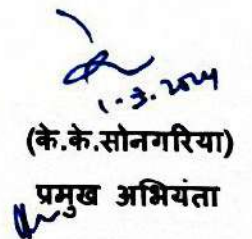 1.3.2024
(के.के.सोनगरिया)
प्रमुख अभियंता